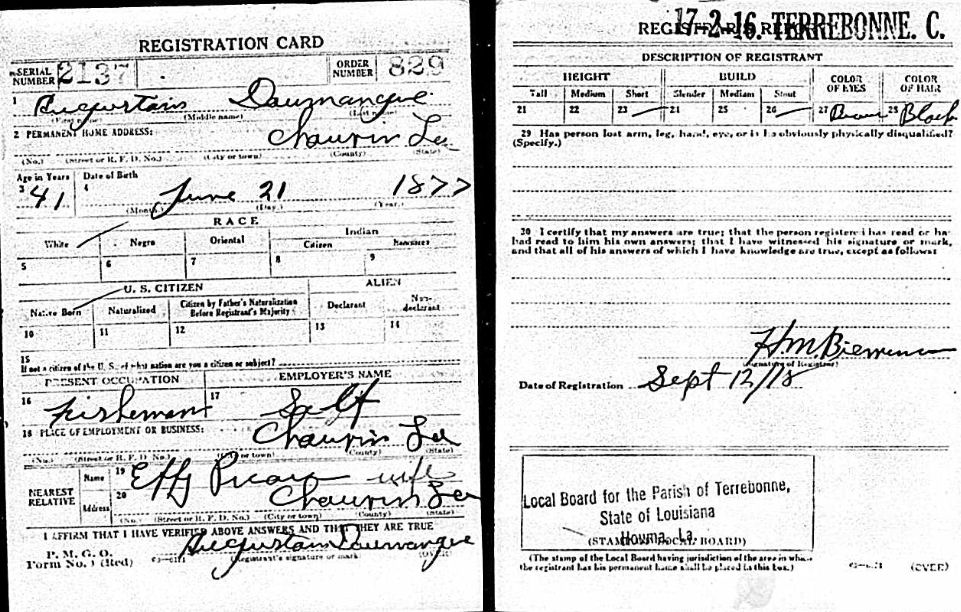 REGISTRATION CARD
SERIAL NUMBER 2137 ORDER NUMBER 829
1 Augustain Daumangue
(First name) (Middle name) (Last name)
2 PERMANENT HOME ADDRESS:
Chauvin La
(No.) (Street or R. F. D. No.) (City or town) (County) (State)
Age in Years Date of Birth
3 41 4 June 21 1877
(Month.) (Day.) (Year.)
RACE
White Negro Oriental Indian
Citizen
5 6 7 8 9
U. S. CITIZEN ALIEN
Native Born Naturalized Citizen by Father's Naturalization Before Registrant's Majority Declarant Non-declarant
10 11 12 13 14
15
If not a citizen of the U. S., of what nation are you a citizen or subject?
PRESENT OCCUPATION EMPLOYER'S NAME
16 Fishermant 17 Self
18 PLACE OF EMPLOYMENT OR BUSINESS:
Chauvin La
(No.) (Street or R. F. D. No.) (City or town) (County) (State)
NEAREST RELATIVE Name 19 Effy Picou wife
Address 20 Chauvin La
(No.) (Street or R. F. D. No.) (City or town) (County) (State)
I AFFIRM THAT I HAVE VERIFIED ABOVE ANSWERS AND THAT THEY ARE TRUE
Augustain Daumangue
P. M. G. O.
Form No. 1 (Red) (Registrant's signature or mark) (OVER)
17-2-16. TERREBONNE. C.
DESCRIPTION OF REGISTRANT
HEIGHT BUILD COLOR OF EYES COLOR OF HAIR
Tall Medium Short Slender Medium Stout
21 22 23 24 25 26 27 Brown 28 Black
29 Has person lost arm, leg, hand, eye, or is he obviously physically disqualified?
(Specify.)
30 I certify that my answers are true; that the person registered has read or has
had read to him his own answers; that I have witnessed his signature or mark,
and that all of his answers of which I have knowledge are true, except as follows:
H. M. Bienvenu
(Signature of Registrar)
Date of Registration Sept 12/18
Local Board for the Parish of Terrebonne,
State of Louisiana
Houma, La.
(STAMP OF LOCAL BOARD)
(The stamp of the Local Board having jurisdiction of the area in which
the registrant has his permanent home shall be placed in this box.)
(OVER)